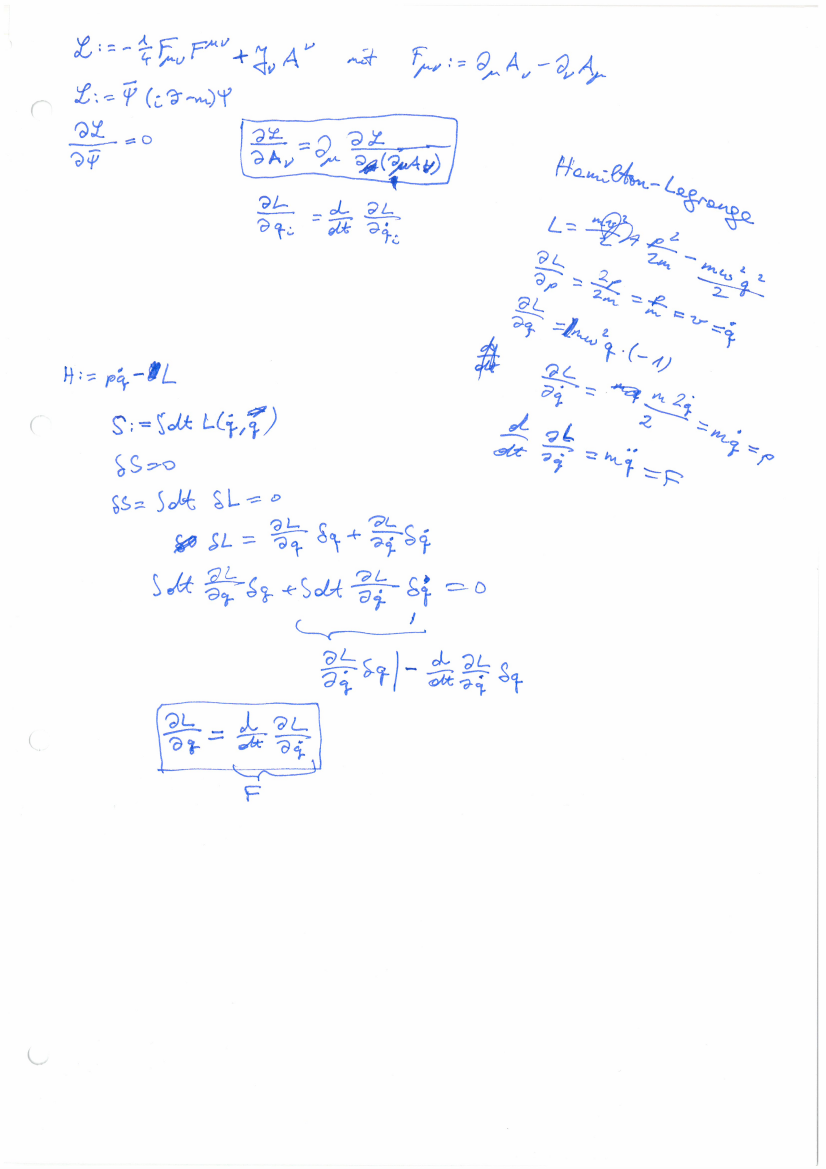 ℒ := -1/4 F_μν F^μν + J_ν A^ν mit F_μν := ∂_μ A_ν - ∂_ν A_μ
ℒ := Ψ̄ (i∂ - m)Ψ
∂ℒ/∂Ψ̄ = 0
∂ℒ/∂A_ν = ∂_μ ∂ℒ/∂(∂_μ A_ν)
∂L/∂q_i = d/dt ∂L/∂q̇_i
Hamilton-Lagrange
L = p²/2m - mω²q²/2
∂L/∂p = 2p/2m = p/m = v = q̇
∂L/∂q = mω²q·(-1)
∂L/∂q̇ = m 2q̇/2 = mq̇ = p
d/dt ∂L/∂q̇ = mq̈ = F
H := pq̇ - L
S := ∫dt L(q̇, q)
δS = 0
δS = ∫dt δL = 0
δL = ∂L/∂q δq + ∂L/∂q̇ δq̇
∫dt ∂L/∂q δq + ∫dt ∂L/∂q̇ δq̇ = 0
∂L/∂q̇ δq | - d/dt ∂L/∂q̇ δq
∂L/∂q = d/dt ∂L/∂q̇
F